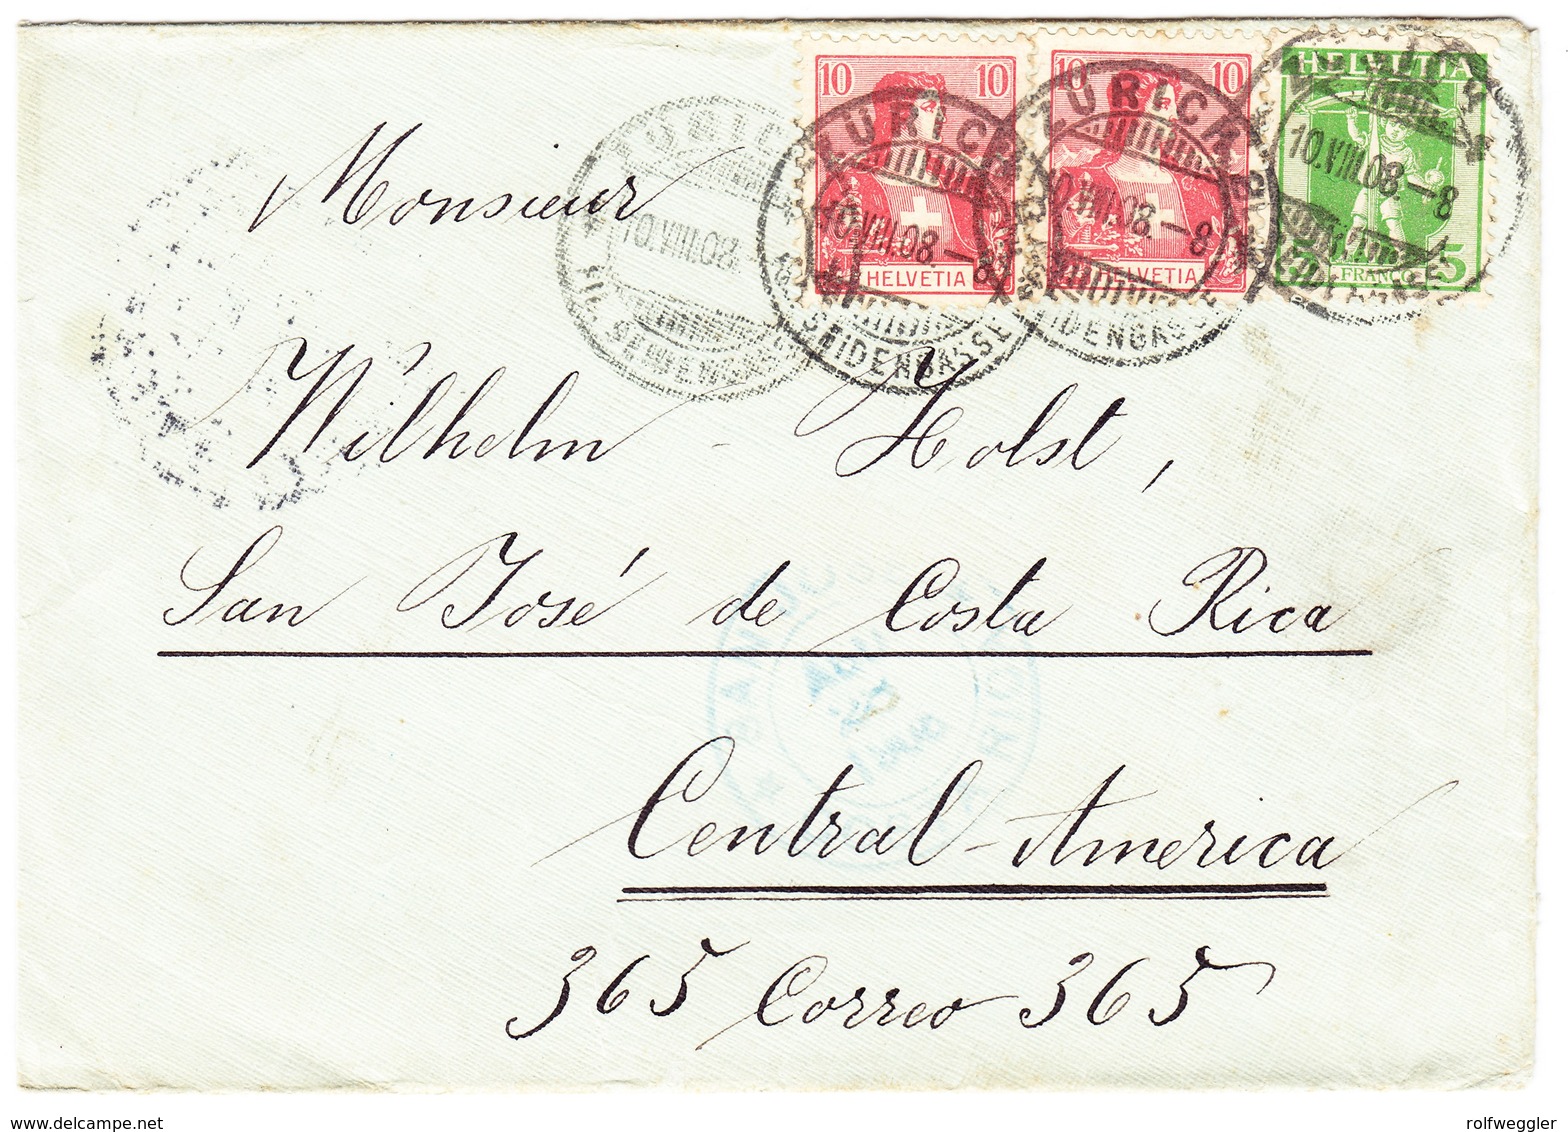 10 10 HELVETIA
10 10 HELVETIA
HELVETIA FRANCO 5
ZÜRICH
10.VIII.08.
ZÜRICH
10.VIII.08.–8
SEIDENGASSE
ZÜRICH
10.VIII.08.–8
SEIDENGASSE
10.VIII.08–8
Monsieur
Wilhelm - Holst,
San José de Costa Rica
Central-America
365 Correo 365
www.delcampe.net
rolfweggler